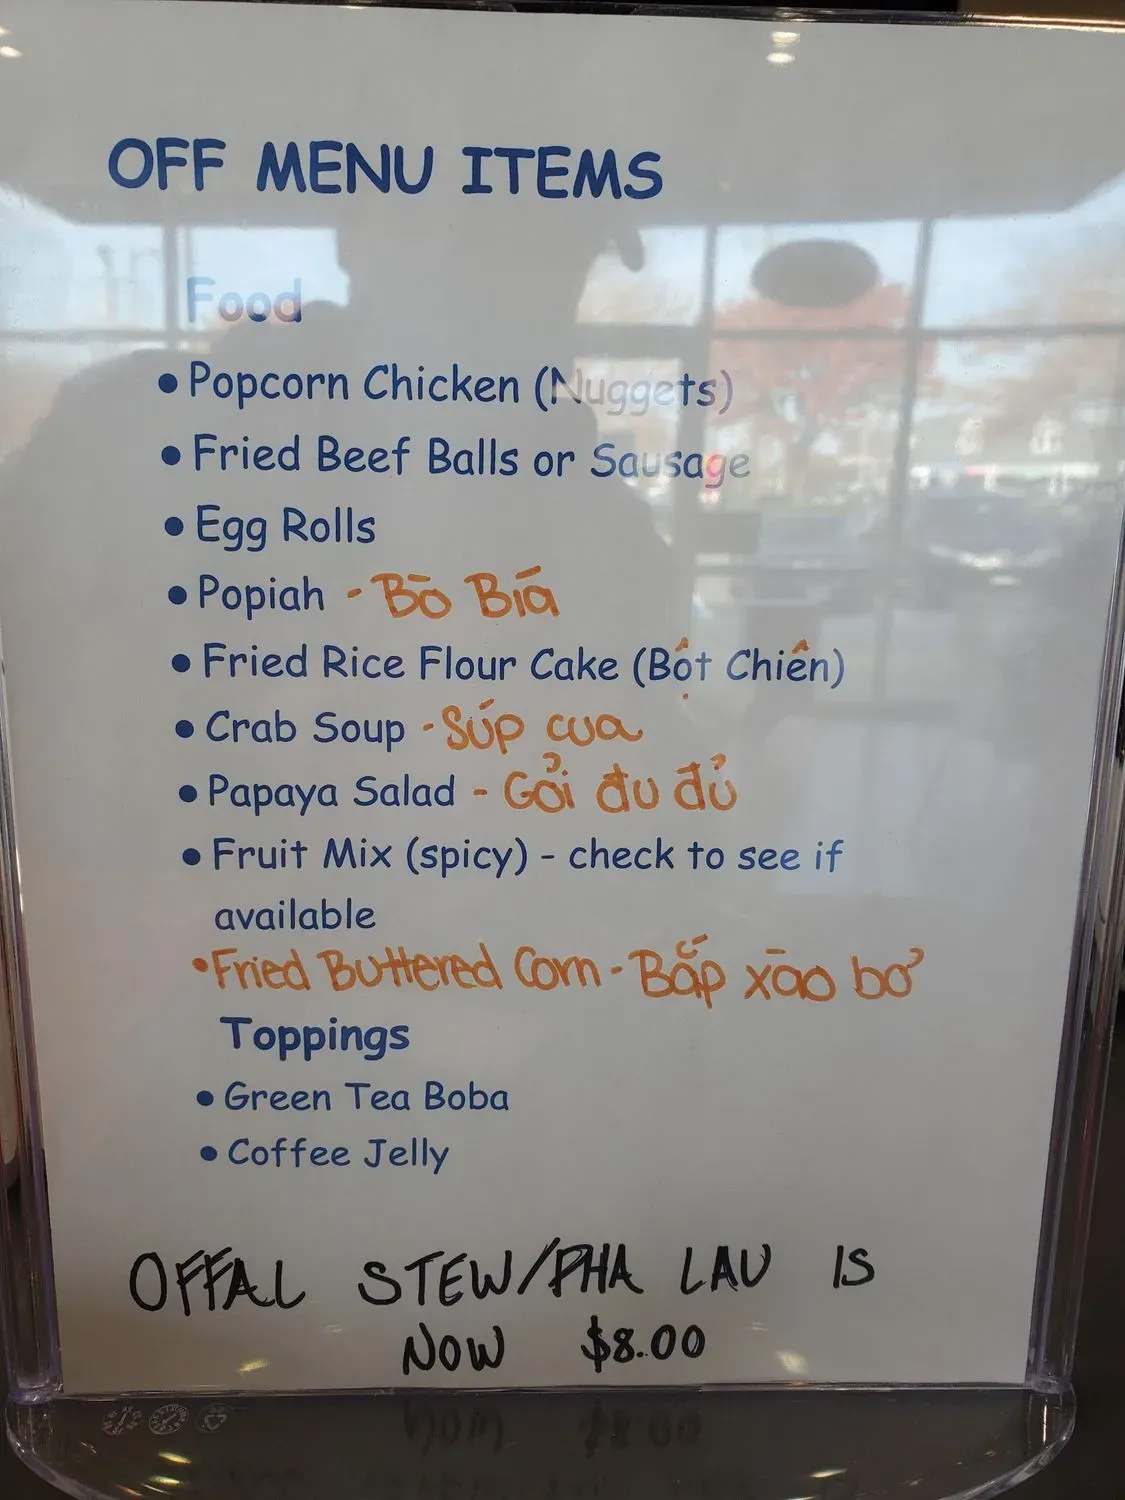 OFF MENU ITEMS
Food
• Popcorn Chicken (Nuggets)
• Fried Beef Balls or Sausage
• Egg Rolls
• Popiah - Bò Bía
• Fried Rice Flour Cake (Bột Chiên)
• Crab Soup - Súp cua
• Papaya Salad - Gỏi đu đủ
• Fruit Mix (spicy) - check to see if
available
• Fried Buttered Corn - Bắp xào bơ
Toppings
• Green Tea Boba
• Coffee Jelly
OFFAL STEW/PHA LAU IS
NOW $8.00